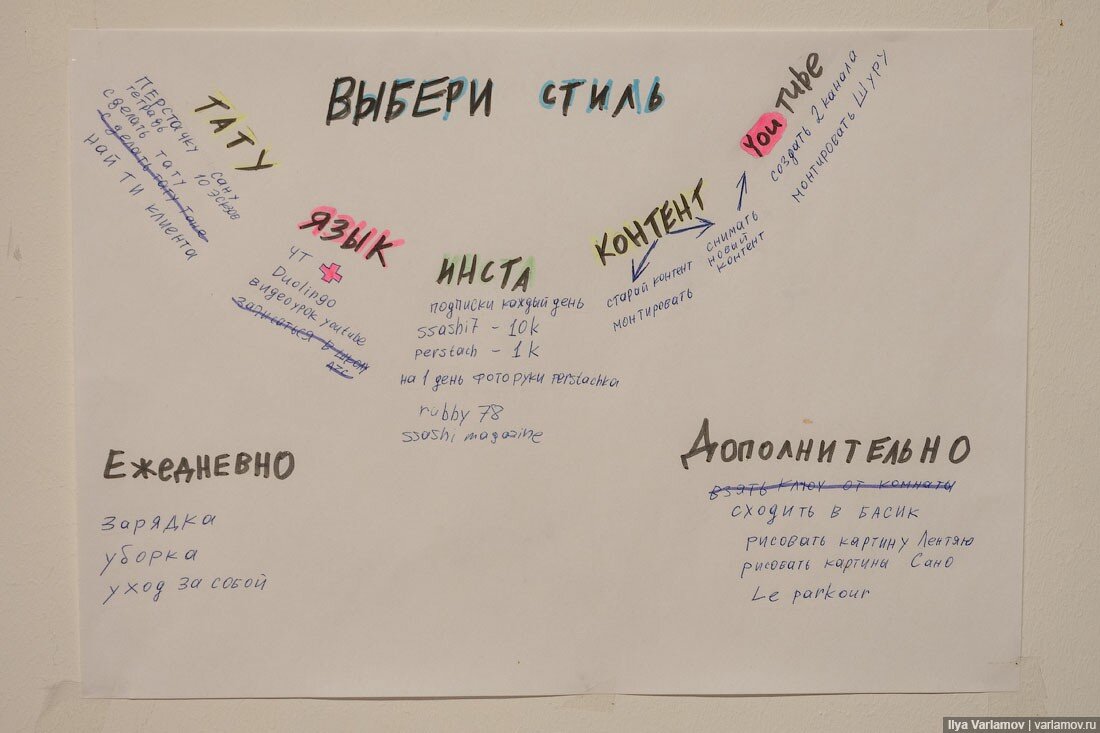 ВЫБЕРИ СТИЛЬ
ТАТУ
ПЕРСТАЧКУ
тетрадь сану
сделать тату 10 эсков
сделать тату Тане
НАЙТИ КЛИЕНТА
ЯЗЫК
ЧТ
Duolingo
видеоурок youtube
записаться в
ИНСТА
подписки каждый день
ssashi7 - 10k
perstach - 1k
на 1 день фото руки perstachka
rubby 78
ssashi magazine
КОНТЕНТ
старай контент
монтировать
снимать
новый
контент
YouTube
создать 2 канала
монтировать ШУРУ
ЕЖЕДНЕВНО
зарядка
уборка
уход за собой
ДОПОЛНИТЕЛЬНО
взять ключ от комнаты
сходить в БАСИК
рисовать картину Лентяю
рисовать картины Сано
Le parkour
Ilya Varlamov | varlamov.ru